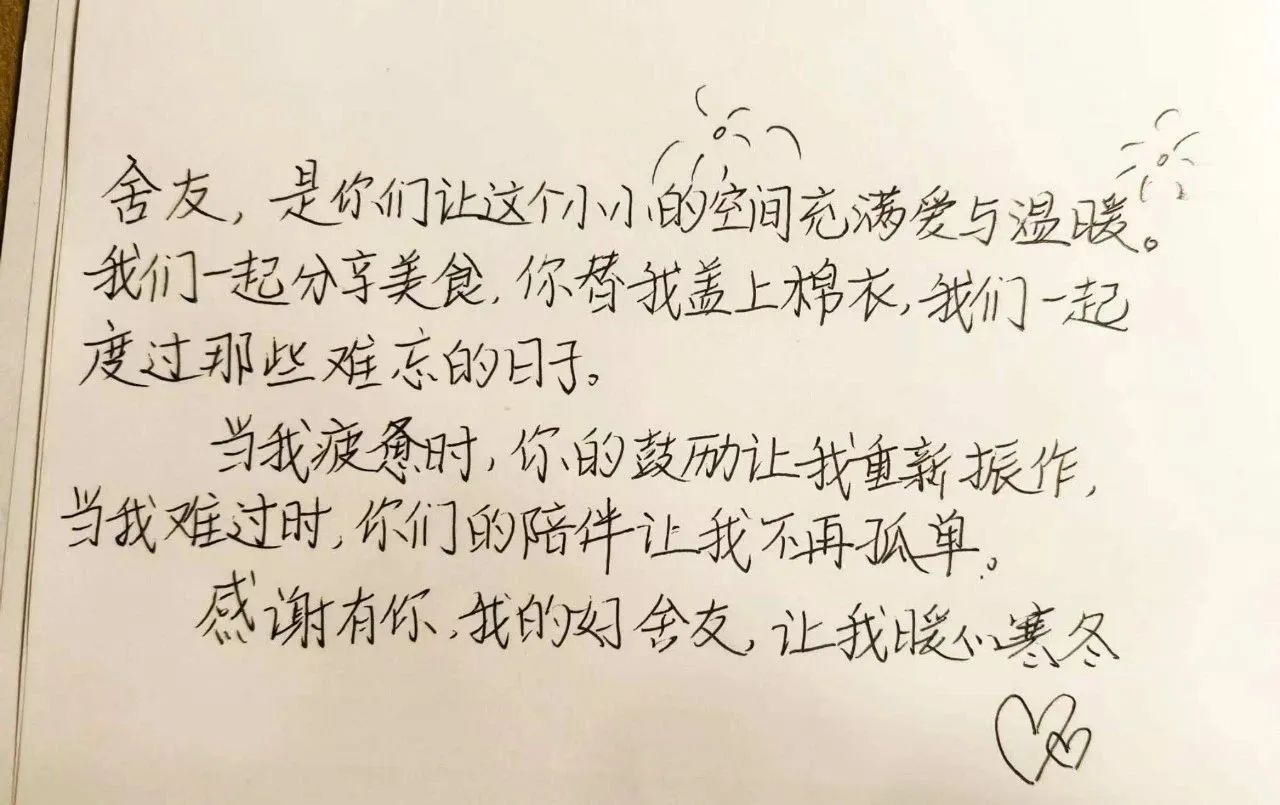 舍友，是你们让这个小小的空间充满爱与温暖。
我们一起分享美食，你替我盖上棉衣，我们一起
度过那些难忘的日子。
当我疲惫时，你的鼓励让我重新振作，
当我难过时，你们的陪伴让我不再孤单。
感谢有你，我的好舍友，让我暖心寒冬